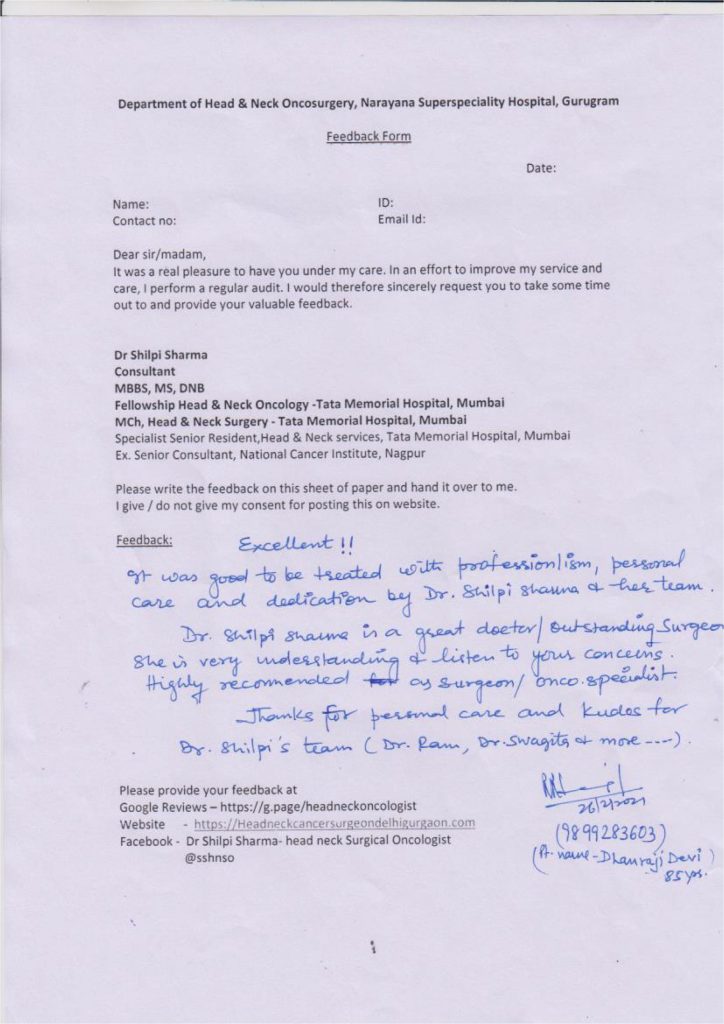 Department of Head & Neck Oncosurgery, Narayana Superspeciality Hospital, Gurugram
Feedback Form
Date:
Name: ID:
Contact no: Email Id:
Dear sir/madam,
It was a real pleasure to have you under my care. In an effort to improve my service and
care, I perform a regular audit. I would therefore sincerely request you to take some time
out to and provide your valuable feedback.
Dr Shilpi Sharma
Consultant
MBBS, MS, DNB
Fellowship Head & Neck Oncology -Tata Memorial Hospital, Mumbai
MCh, Head & Neck Surgery - Tata Memorial Hospital, Mumbai
Specialist Senior Resident,Head & Neck services, Tata Memorial Hospital, Mumbai
Ex. Senior Consultant, National Cancer Institute, Nagpur
Please write the feedback on this sheet of paper and hand it over to me.
I give / do not give my consent for posting this on website.
Feedback: Excellent !!
It was good to be treated with professionlism, personal
care and dedication by Dr. Shilpi Sharma & her team.
Dr. Shilpi Sharma is a great doctor/ outstanding Surgeon
She is very understanding & listen to your concerns.
Highly recommended as surgeon/ onco.specialist.
Thanks for personal care and kudos for
Dr. Shilpi's team (Dr. Ram, Dr. Swagita & more ----).
26/2/2021
(9899283603)
(Pt. name - Dhanraji Devi)
85 yrs.
Please provide your feedback at
Google Reviews – https://g.page/headneckoncologist
Website - https://Headneckcancersurgeondelhigurgaon.com
Facebook - Dr Shilpi Sharma- head neck Surgical Oncologist
@sshnso